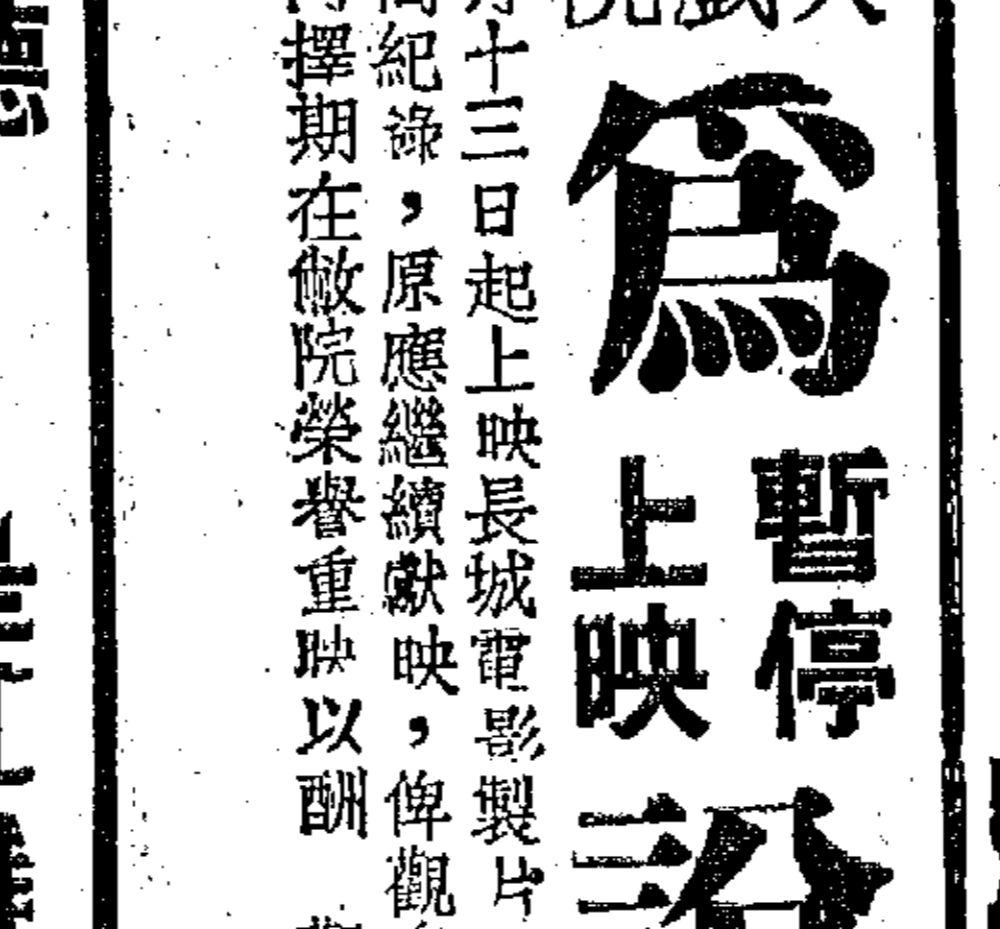 爲
暫停
上映
十三日起上映長城電影製片
紀錄，原應繼續獻映，俾觀
擇期在敝院榮譽重映以酬